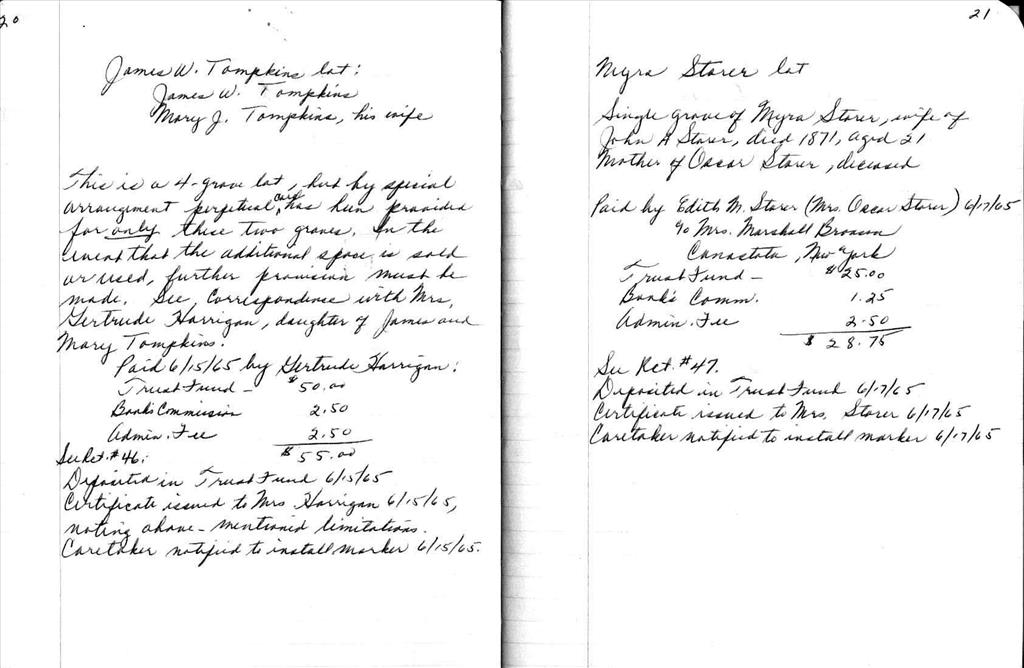 20
James W. Tompkins lot:
James W. Tompkins
Mary J. Tompkins, his wife
This is a 4-grave lot, but by special
arrangement perpetual care has been provided
for only these two graves. In the
event that the additional space is sold
or used, further provision must be
made. See, Correspondence with Mrs.
Gertrude Harrigan, daughter of James and
Mary Tompkins.
Paid 6/15/65 by Gertrude Harrigan:
Trust Fund - $50.00
Bank's Commission 2.50
Admin. Fee 2.50
$55.00
See Rct. #46:
Deposited in Trust Fund 6/15/65
Certificate issued to Mrs Harrigan 6/15/65,
noting above-mentioned limitations.
Caretaker notified to install marker 6/15/65.
21
Myra Storer lot
Single grave of Myra Storer, wife of
John A Storer, died 1871, aged 21
Mother of Oscar Storer, deceased
Paid by Edith M. Storer (Mrs. Oscar Storer) 6/17/65
% Mrs. Marshall Bronson
Canastota, New York
Trust Fund - $25.00
Bank's Comm. 1.25
Admin. Fee 2.50
$28.75
See Rct. #47.
Deposited in Trust Fund 6/17/65
Certificate issued to Mrs. Storer 6/17/65
Caretaker notified to install marker 6/17/65